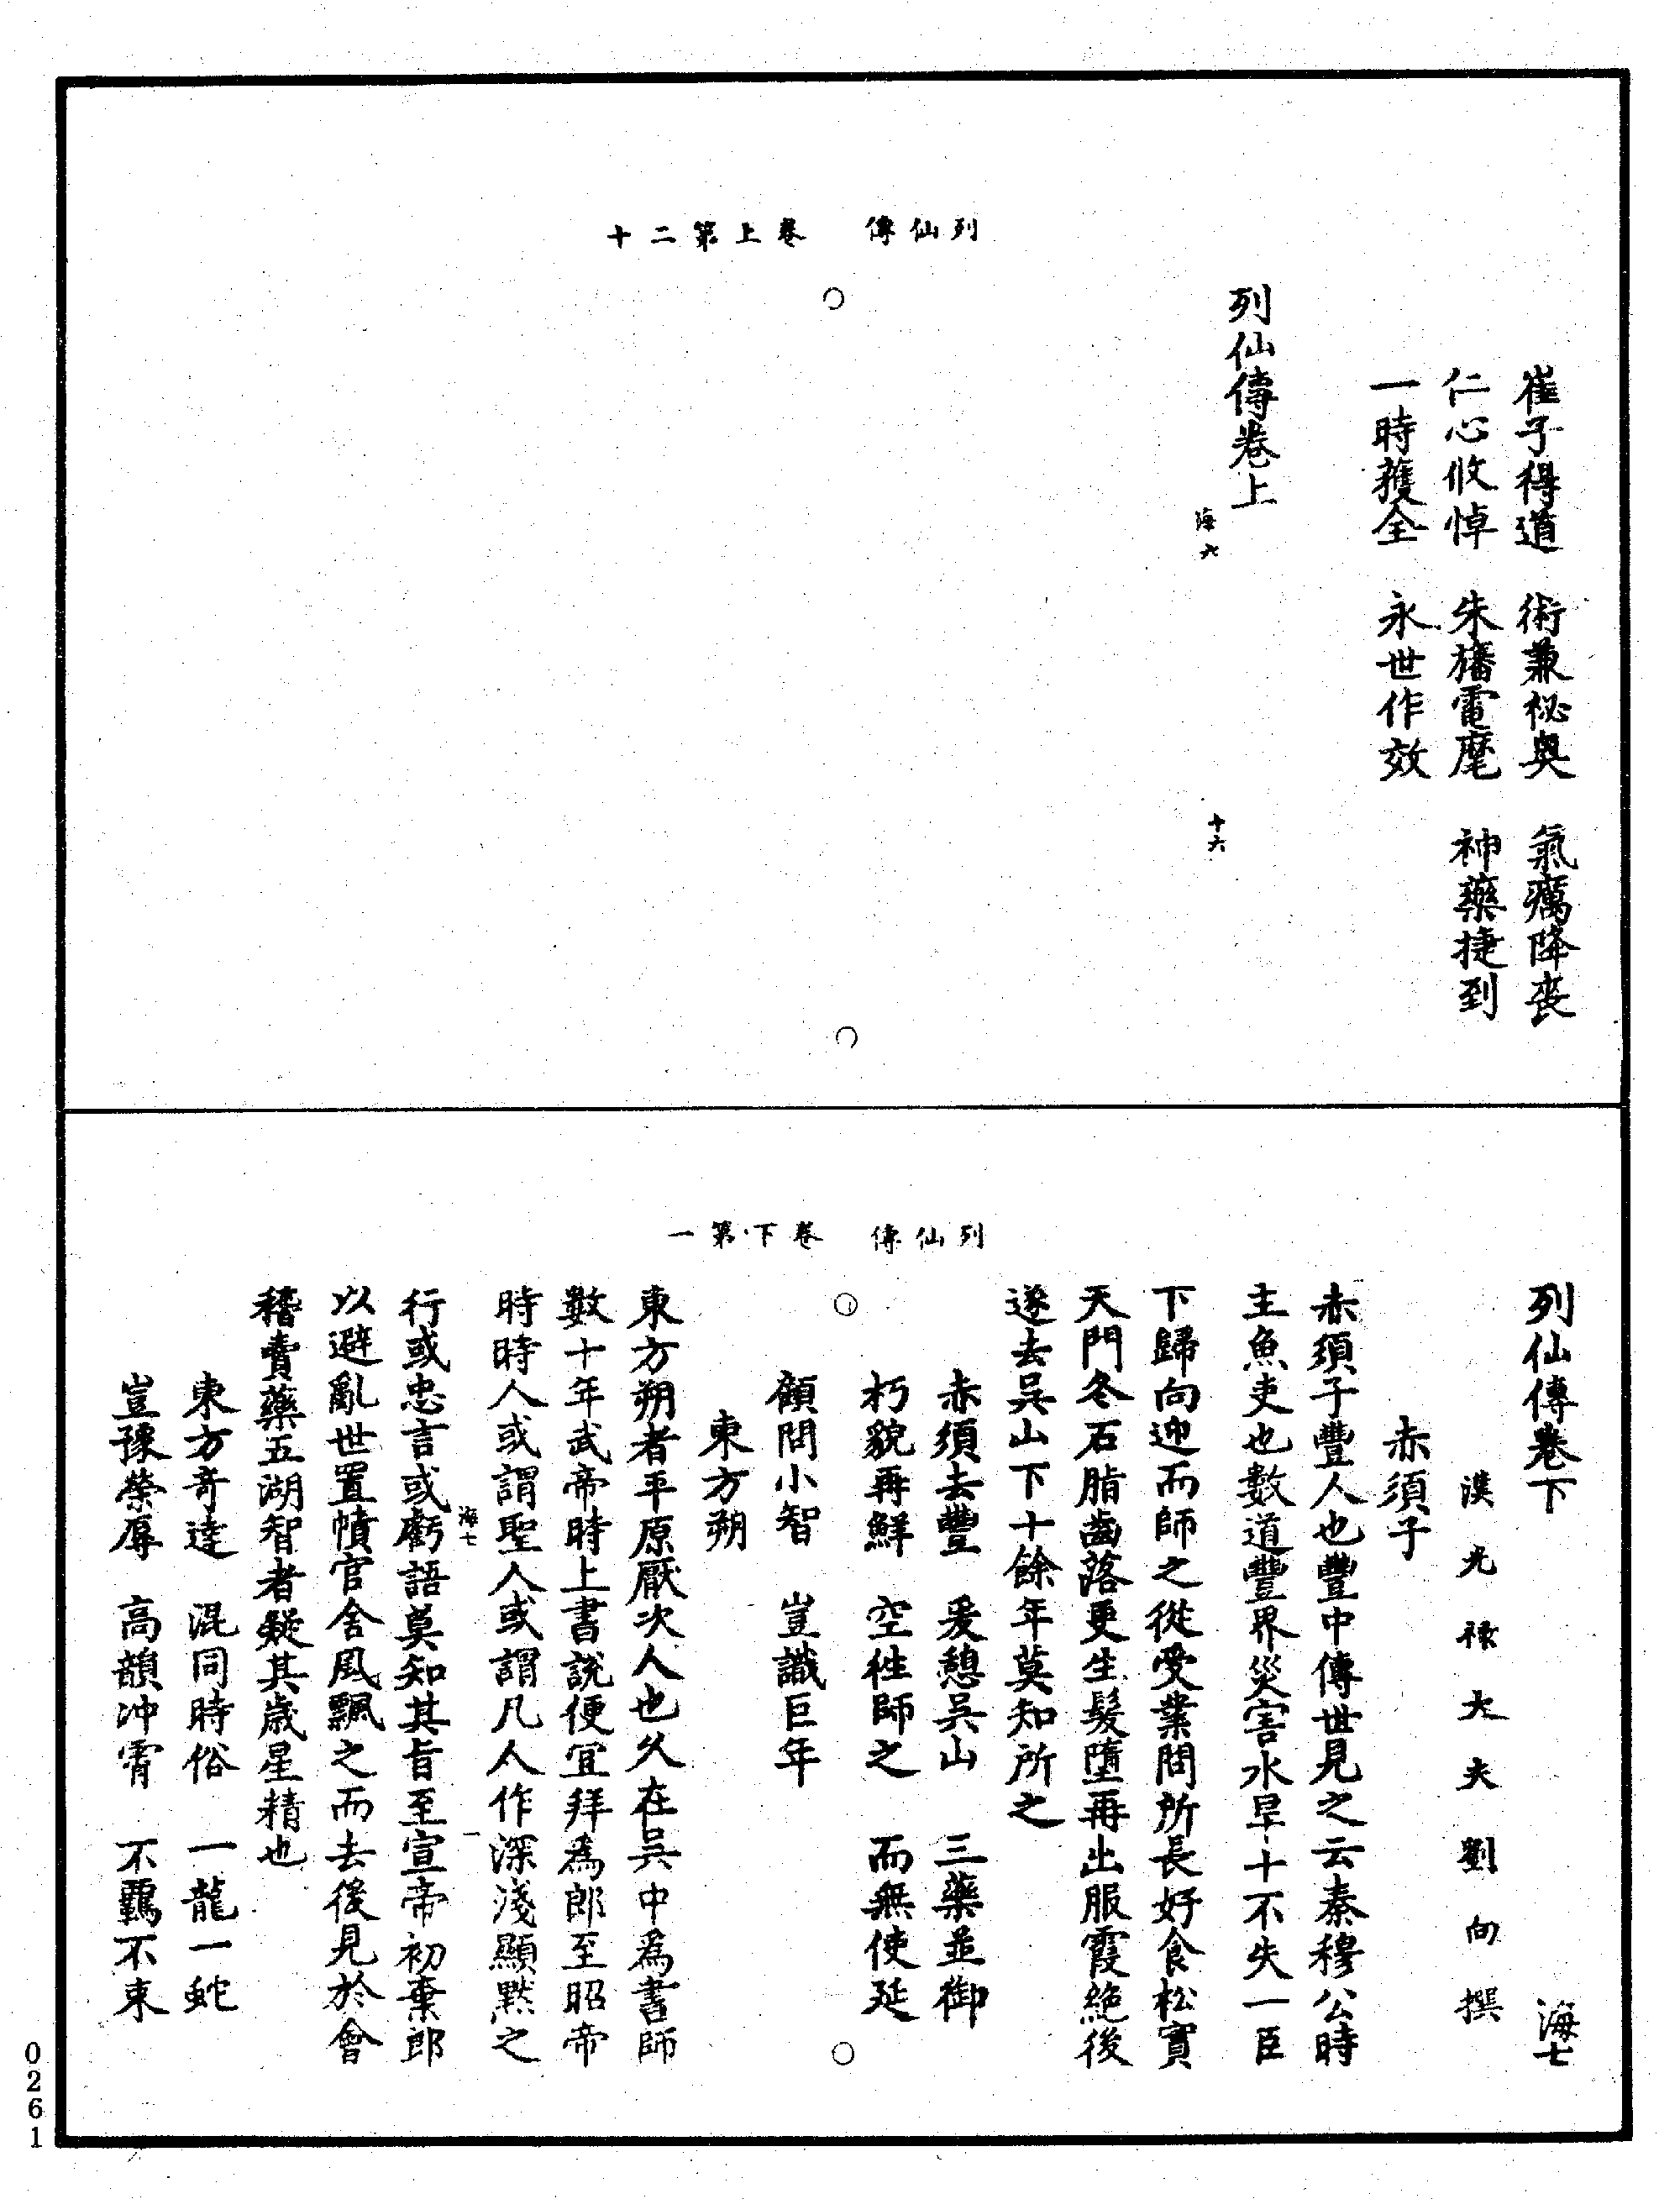 列仙傳　卷上第二十
崔子得道　術兼祕奥　氣癘降喪
仁心攸悼　朱旛電麾　神藥捷到
一時獲全　永世作效
列仙傳卷上
海六　十六
列仙傳　卷下第一
列仙傳卷下　海七
漢光祿大夫劉向撰
赤須子
赤須子豐人也豐中傳世見之云秦穆公時
主魚吏也數道豐界災害水旱十不失一臣
下歸向迎而師之從受業問所長好食松實
天門冬石脂齒落更生髮墮再出服霞絶後
遂去吴山下十餘年莫知所之
赤須去豐　爰憩吴山　三藥並御
朽貌再鮮　空往師之　而無使延
顧問小智　豈識巨年
東方朔
東方朔者平原厭次人也久在吴中爲書師
數十年武帝時上書說便宜拜爲郎至昭帝
時時人或謂聖人或謂凡人作深淺顯默之
海七　一
行或忠言或虧語莫知其旨至宣帝初棄郎
以避亂世置幘官舍風飄之而去後見於會
稽賣藥五湖智者疑其歲星精也
東方奇達　混同時俗　一龍一蛇
豈豫榮辱　高韻冲霄　不羈不束
0261